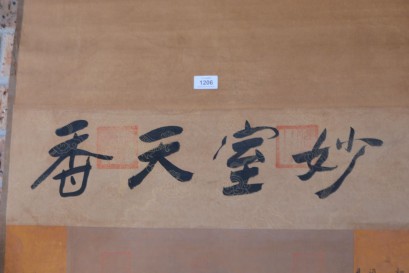 1206
妙室天香